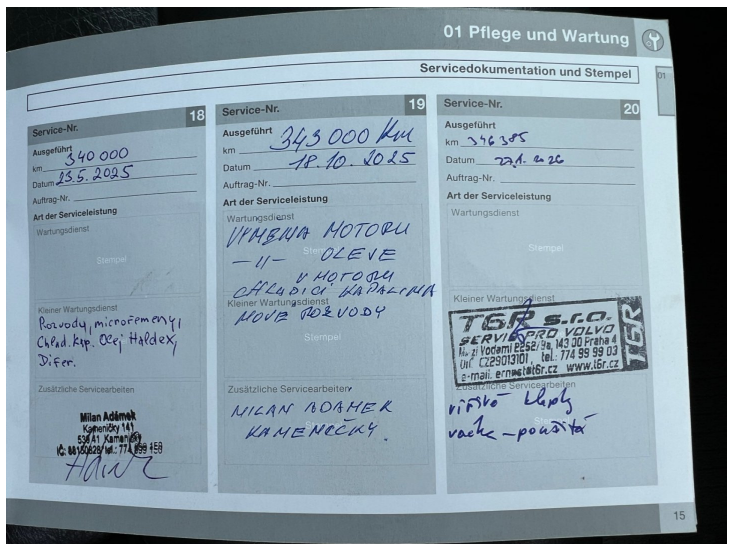 01 Pflege und Wartung
Servicedokumentation und Stempel
01
Service-Nr. 18
Ausgeführt
km 340 000
Datum 23.5.2025
Auftrag-Nr.
Art der Serviceleistung
Wartungsdienst
Stempel
Kleiner Wartungsdienst
Rozvody, mikrořemeny,
Chlad. kap. Olej Haldex,
Difer.
Zusätzliche Servicearbeiten
Milan Adámek
Kameničky 141
539 41 Kameničky
Service-Nr. 19
Ausgeführt
km 343 000 Km
Datum 18.10.2025
Auftrag-Nr.
Art der Serviceleistung
Wartungsdienst
VÝMĚNA MOTORU
Stempel
-11- OLEVE
V MOTORU
CHLADICI KAPALINA
Kleiner Wartungsdienst
NOVE ROZVODY
Stempel
Zusätzliche Servicearbeiten
MILAN ADAMEK
KAMENICKY.
Service-Nr. 20
Ausgeführt
km 346385
Datum 27.1. 2026
Auftrag-Nr.
Art der Serviceleistung
Wartungsdienst
Stempel
Kleiner Wartungsdienst
T6R s.r.o.
SERVIS PRO VOLVO
zi Vodami 2252/9a, 143 00 Praha 4
CZ29013101, tel.: 774 99 99 03
e-mail: ernest@t6r.cz www.t6r.cz
T6R
Zusätzliche Servicearbeiten
klapky
použitá
15